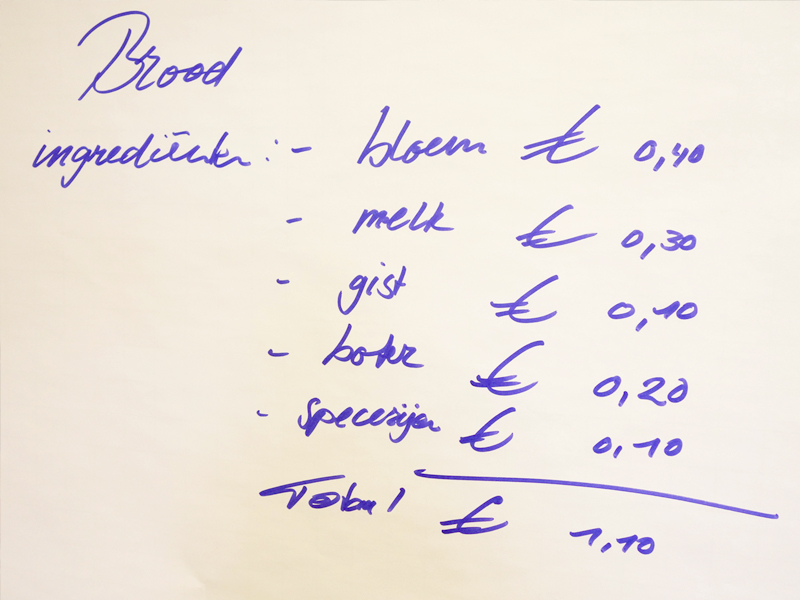 Brood
ingrediënten : - bloem € 0,40
- melk € 0,30
- gist € 0,10
- boter € 0,20
- specerijen € 0,10
Totaal € 1,10